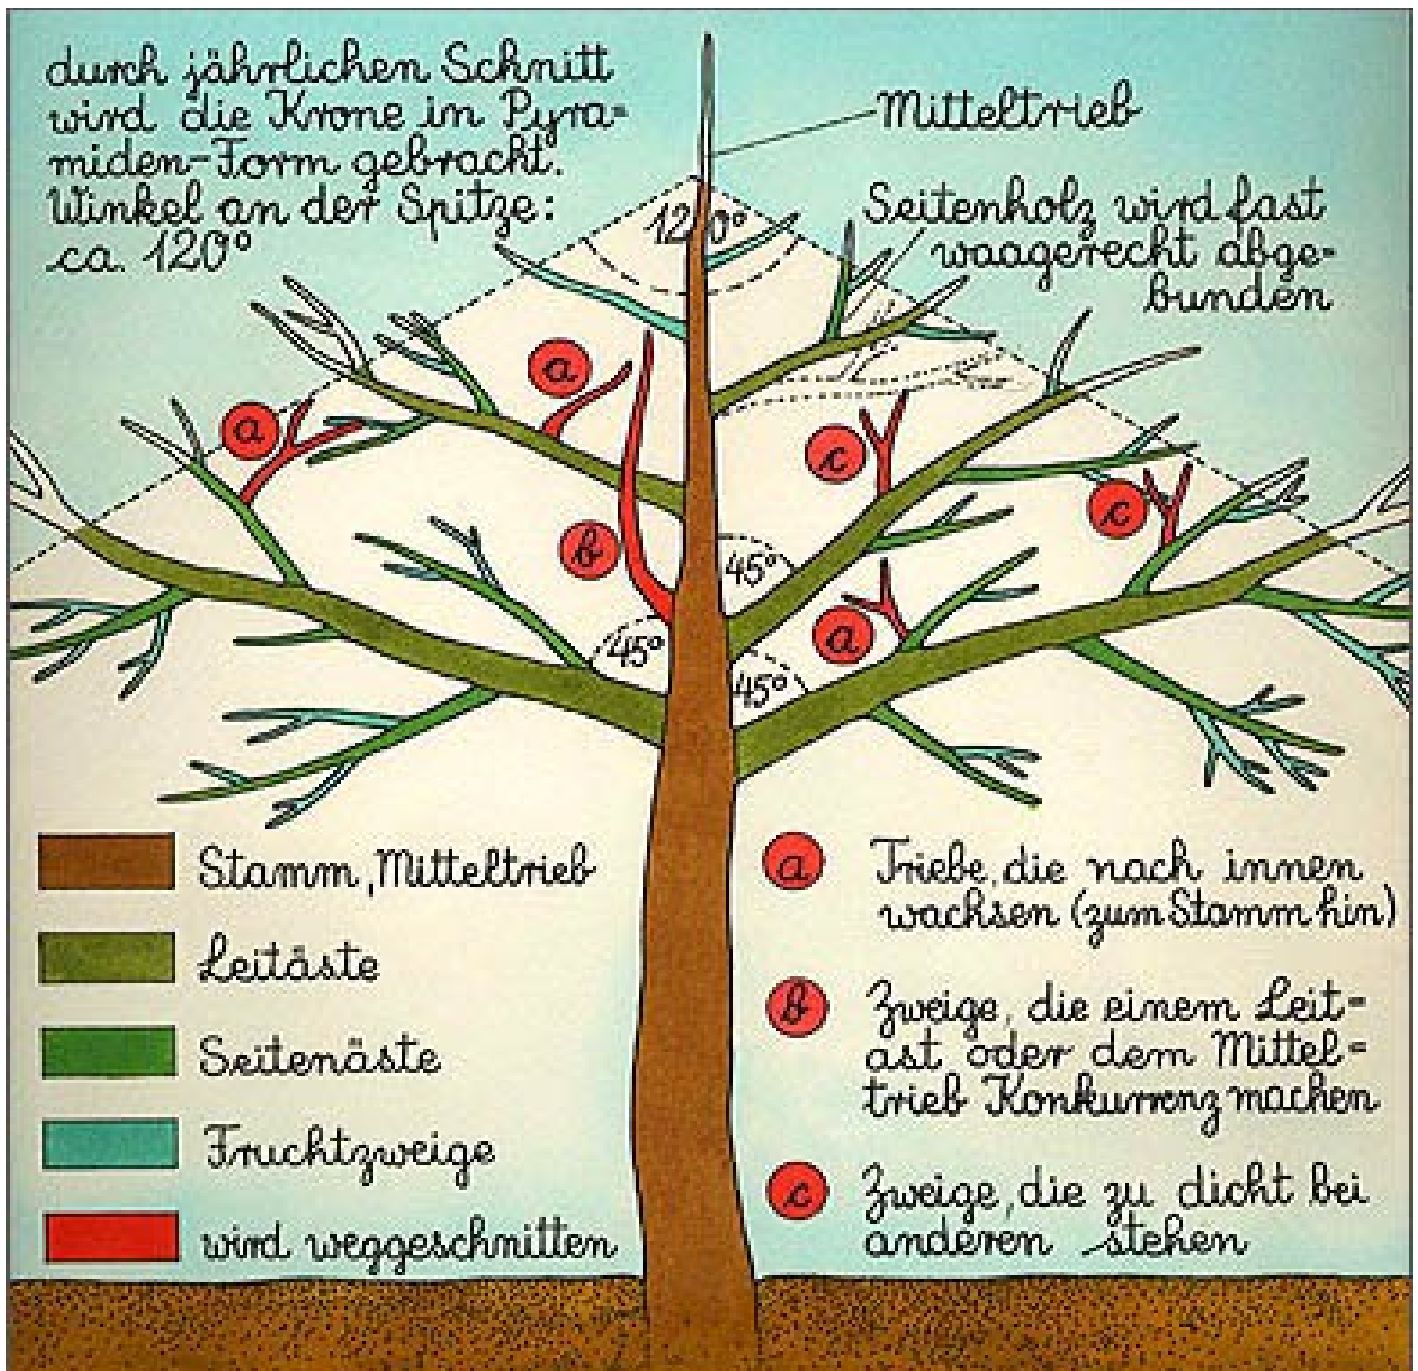 durch jährlichen Schnitt
wird die Krone in Pyra=
miden-Form gebracht.
Winkel an der Spitze:
ca. 120°
Mitteltrieb
Seitenholz wird fast
waagerecht abge=
bunden
120°
a
a
c
c
b
45°
a
45°
45°
Stamm, Mitteltrieb
Leitäste
Seitenäste
Fruchtzweige
wird weggeschnitten
a Triebe, die nach innen
wachsen (zum Stamm hin)
b Zweige, die einem Leit=
ast oder dem Mittel=
trieb Konkurrenz machen
c Zweige, die zu dicht bei
anderen stehen